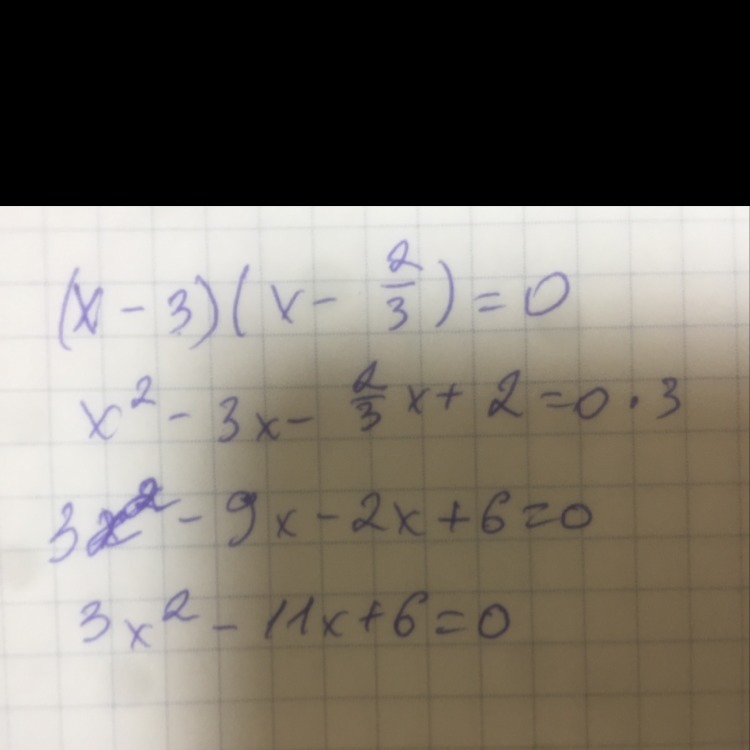 (x - 3)(x - 2/3) = 0
x² - 3x - 2/3 x + 2 = 0 · 3
3x² - 9x - 2x + 6 = 0
3x² - 11x + 6 = 0